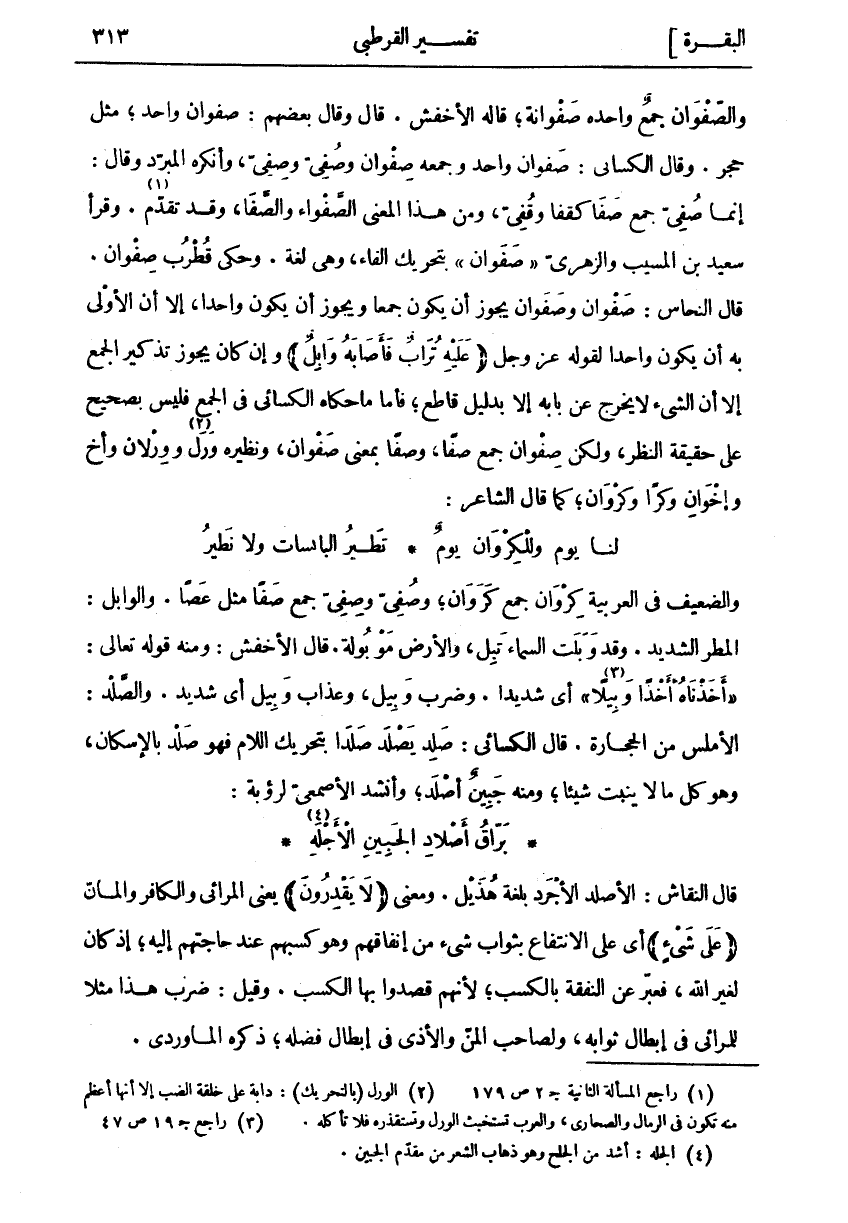 البقـــرة ]    تفســـير القرطبي    ٣١٣
والصَّفْوَان جمعٌ واحده صَفْوانة؛ قاله الأخفش . قال وقال بعضهم : صفوان واحد ؛ مثل
حجر . وقال الكسائى : صَفوان واحد وجمعه صِفْوان وصُفِىّ وصِفِىّ، وأنكره المبرّد وقال :
إنمـا صُفِىّ جمع صَفَا كقفا وقُفِىّ، ومن هـذا المعنى الصَّفْواء والصَّفَا، وقـد تقدّم (١) . وقرأ
سعيد بن المسيب والزهرىّ « صَفَوان » بتحريك الفاء، وهى لغة . وحكى قُطْرُب صِفْوان .
قال النحاس : صَفْوان وصَفَوان يجوز أن يكون جمعا ويجوز أن يكون واحدا، إلا أن الأوْلى
به أن يكون واحدا لقوله عز وجل ﴿ عَلَيْهِ تُرَابٌ فَأَصَابَهُ وَابِلٌ ﴾ و إن كان يجوز تذكير الجمع
إلا أن الشىء لايخرج عن بابه إلا بدليل قاطع؛ فأما ماحكاه الكسائى فى الجمع فليس بصحيح
على حقيقة النظر، ولكن صِفْوان جمع صفًا، وصفًا بمعنى صَفْوان، ونظيره وَرَل (٢) و وِرْلان وأخ
و إخْوَان وكَرًا وكِرْوَان؛ كما قال الشاعر :
لنــا يوم وللكِرْوَان يومٌ * تَطــيرُ البائسات ولا نَطيرُ
والضعيف فى العربية كِرْوَان جمع كَرَوَان؛ وصُفِىّ وصِفِىّ جمع صَفًا مثل عَصًا . والوابل :
المطر الشديد . وقد وَبَلَت السماء تَبِل، والأرض مَوْبُولة. قال الأخفش : ومنه قوله تعالى :
« أَخَذْنَاهُ أَخْذًا وَبِيلًا (٣) » أى شديدا . وضرب وَبِيل، وعذاب وَبِيل أى شديد . والصَّلْد :
الأملس من الحجـارة . قال الكسائى : صَلِد يَصْلَد صَلَدا بتحريك اللام فهو صَلْد بالإسكان،
وهو كل ما لا ينبت شيئا؛ ومنه جَبِينٌ أصْلَد؛ وأنشد الأصمعىّ لرؤبة :
* بَرّاقُ أَصْلادِ الجَبِينِ الْأَجْلَهِ (٤) *
قال النقاش : الأصلد الأجْرَد بلغة هُذَيْل . ومعنى ﴿ لَا يَقْدِرُونَ ﴾ يعنى المرائى والكافر والمـانّ
﴿ عَلَى شَيْءٍ ﴾ أى على الانتفاع بثواب شىء من إنفاقهم وهو كسبهم عند حاجتهم إليه؛ إذ كان
لغير الله ، فعبّر عن النفقة بالكسب؛ لأنهم قصدوا بها الكسب . وقيل : ضرب هـذا مثلا
للمرائى فى إبطال ثوابه، ولصاحب المنّ والأذى فى إبطال فضله؛ ذكره المـاوردى .
(١) راجع المسألة الثانية جـ ٢ ص ١٧٩    (٢) الورل (بالتحريك) : دابة على خلقة الضب إلا أنها أعظم
منه تكون فى الرمال والصحارى، والعرب تستخبث الورل وتستقذره فلا تأكله .    (٣) راجع جـ ١٩ ص ٤٧
(٤) الجله : أشد من الجلح وهو ذهاب الشعر من مقدّم الجبين .